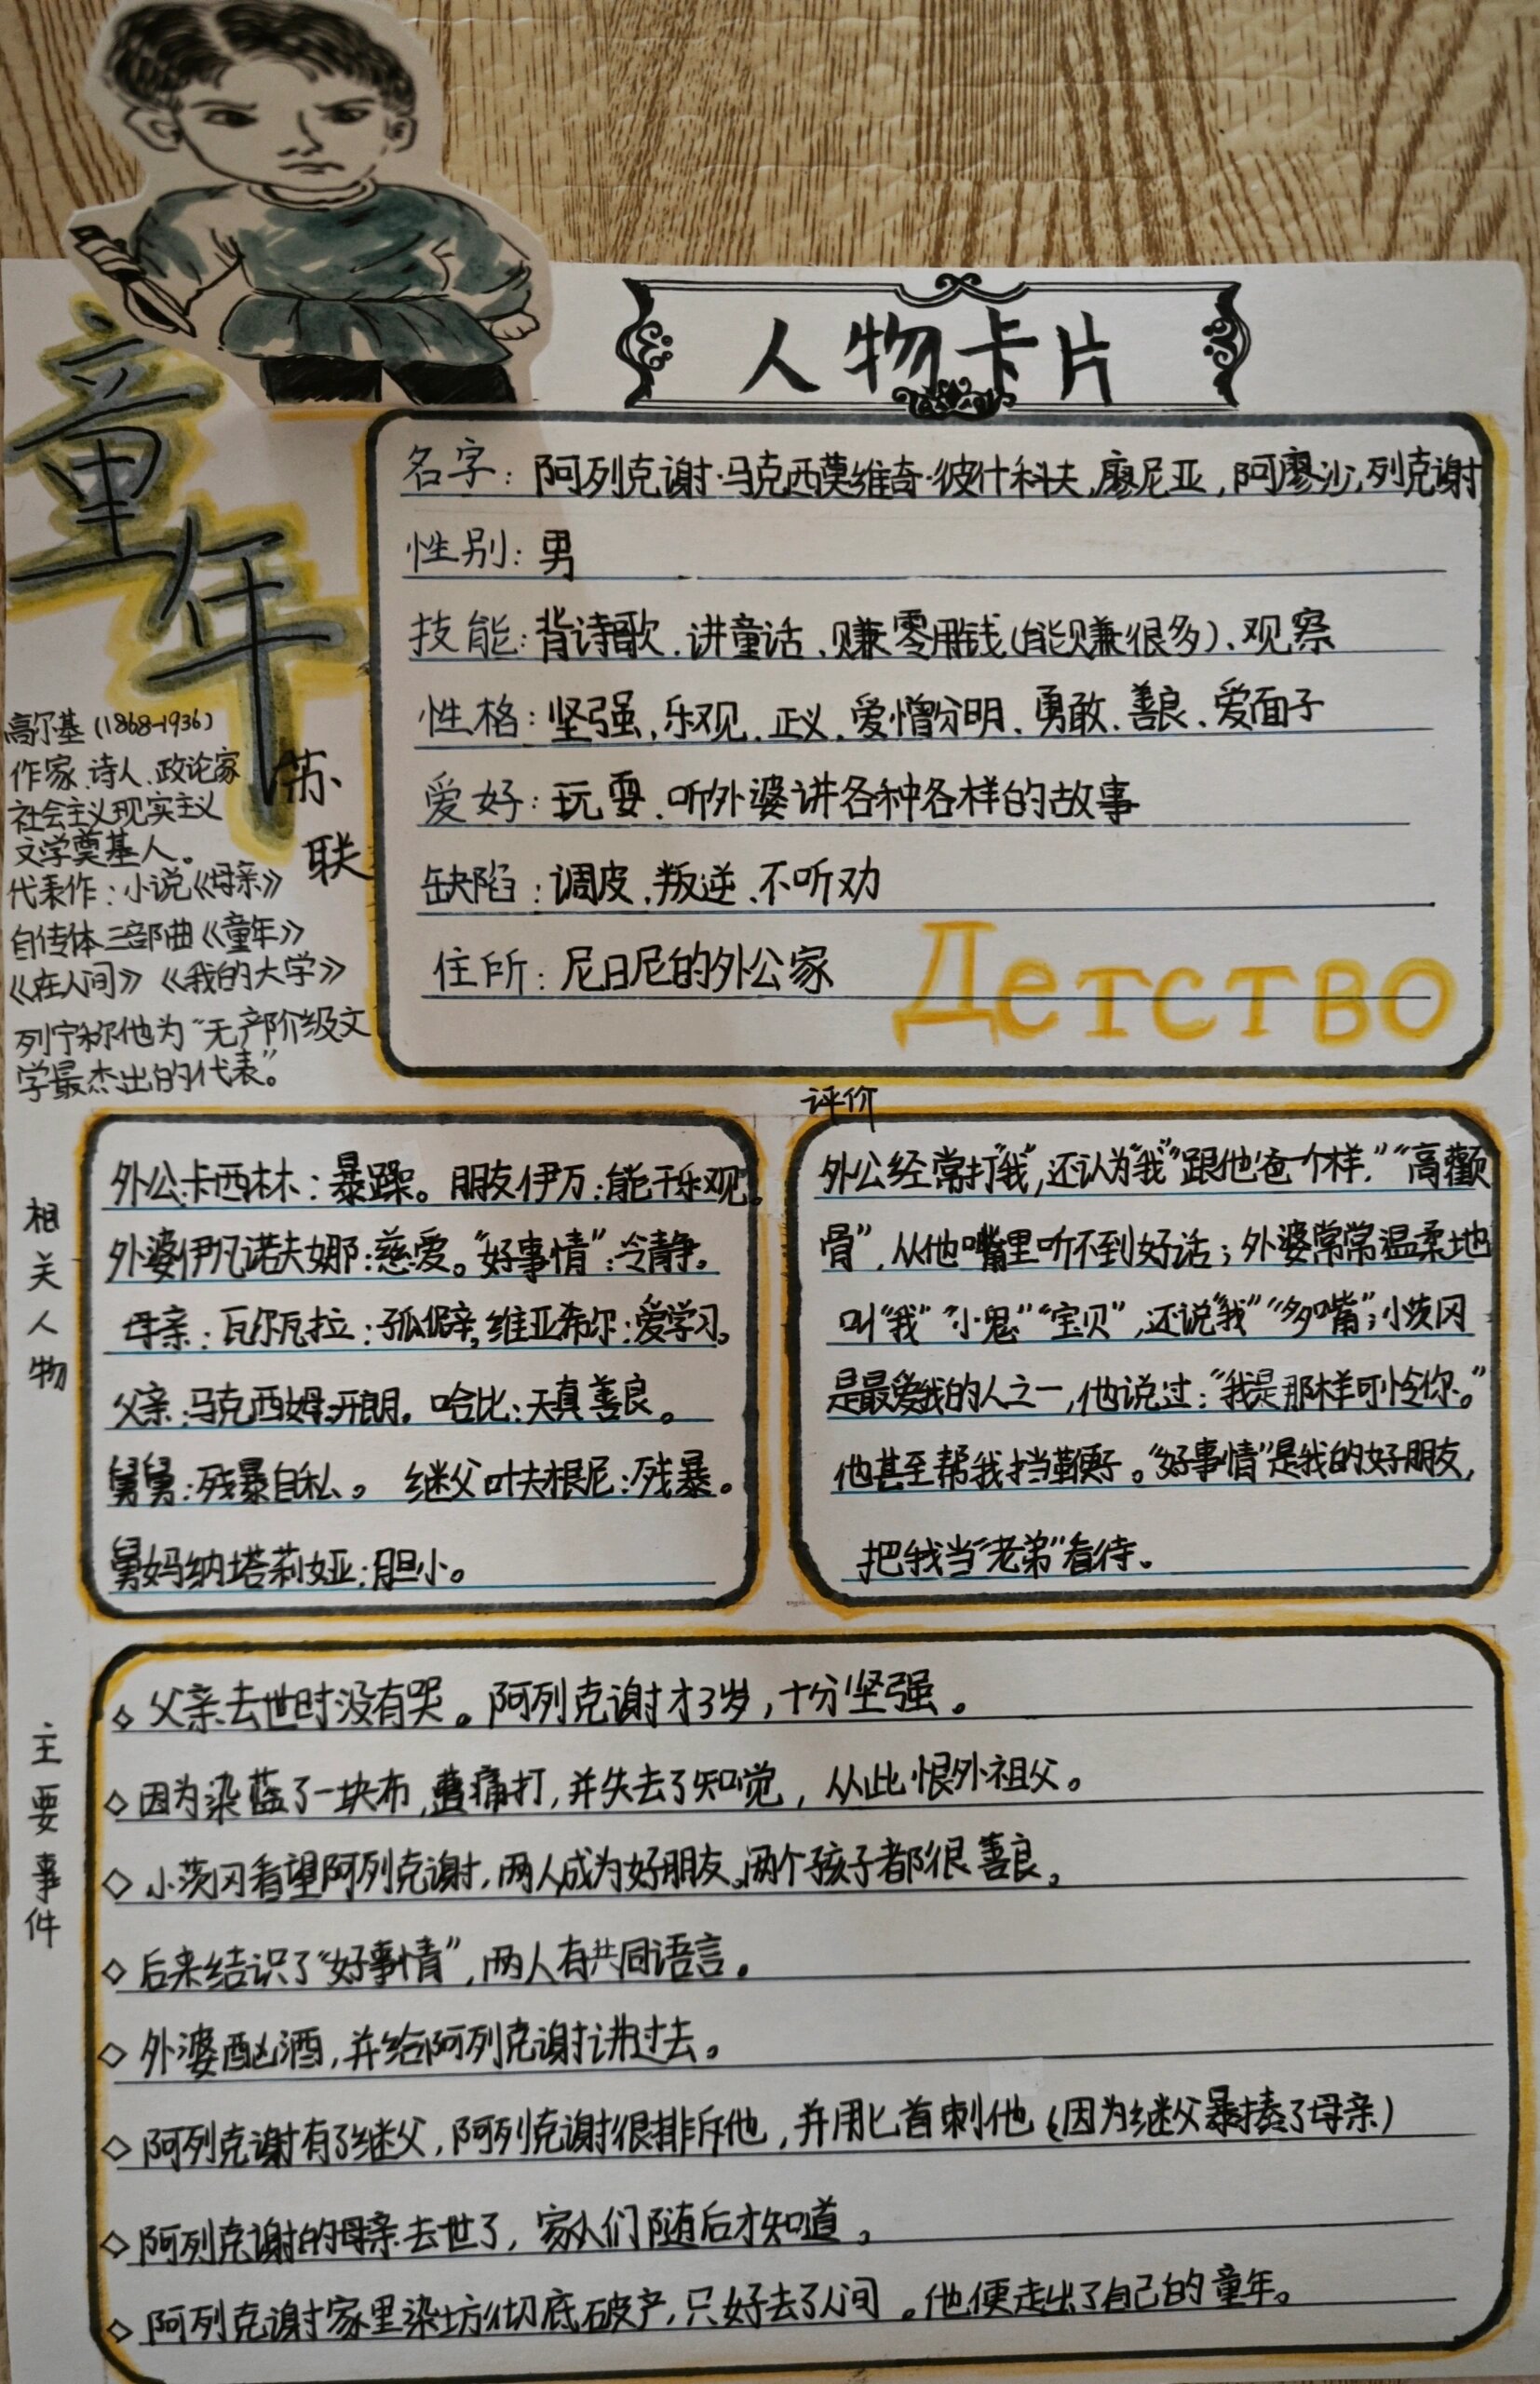 人物卡片
童年
苏联
高尔基(1868-1936)
作家、诗人、政论家
社会主义现实主义
文学奠基人。
代表作：小说《母亲》
自传体三部曲《童年》
《在人间》《我的大学》
列宁称他为“无产阶级文
学最杰出的代表”。
名字：阿列克谢·马克西莫维奇·彼什科夫,廖尼亚,阿廖沙,列克谢
性别：男
技能：背诗歌、讲童话、赚零用钱(能赚很多)、观察
性格：坚强、乐观、正义、爱憎分明、勇敢、善良、爱面子
爱好：玩耍、听外婆讲各种各样的故事
缺陷：调皮、叛逆、不听劝
住所：尼日尼的外公家
Детство
相关人物
外公:卡西林：暴躁。朋友伊万:能干乐观。
外婆伊凡诺夫娜:慈爱。“好事情”:冷静。
母亲：瓦尔瓦拉：孤僻,维亚希尔:爱学习。
父亲:马克西姆:开朗。哈比:天真善良。
舅舅:残暴自私。继父叶夫根尼:残暴。
舅妈纳塔莉娅:胆小。
评价
外公经常打“我”,还认为“我”“跟他爸一个样，”“高颧
骨”,从他嘴里听不到好话；外婆常常温柔地
叫“我”“小鬼”“宝贝”,还说“我”“多嘴”;小茨冈
是最爱我的人之一,他说过：“我是那样可怜你。”
他甚至帮我挡鞭子。“好事情”是我的好朋友,
把我当“老弟”看待。
主要事件
◇父亲去世时没有哭。阿列克谢才3岁，十分坚强。
◇因为染蓝了一块布,遭痛打,并失去了知觉，从此恨外祖父。
◇小茨冈看望阿列克谢,两人成为好朋友,两个孩子都很善良。
◇后来结识了“好事情”,两人有共同语言。
◇外婆酗酒,并给阿列克谢讲过去。
◇阿列克谢有了继父,阿列克谢很排斥他,并用匕首刺他(因为继父暴揍了母亲)
◇阿列克谢的母亲去世了，家人们随后才知道。
◇阿列克谢家里染坊彻底破产,只好去了人间。他便走出了自己的童年。